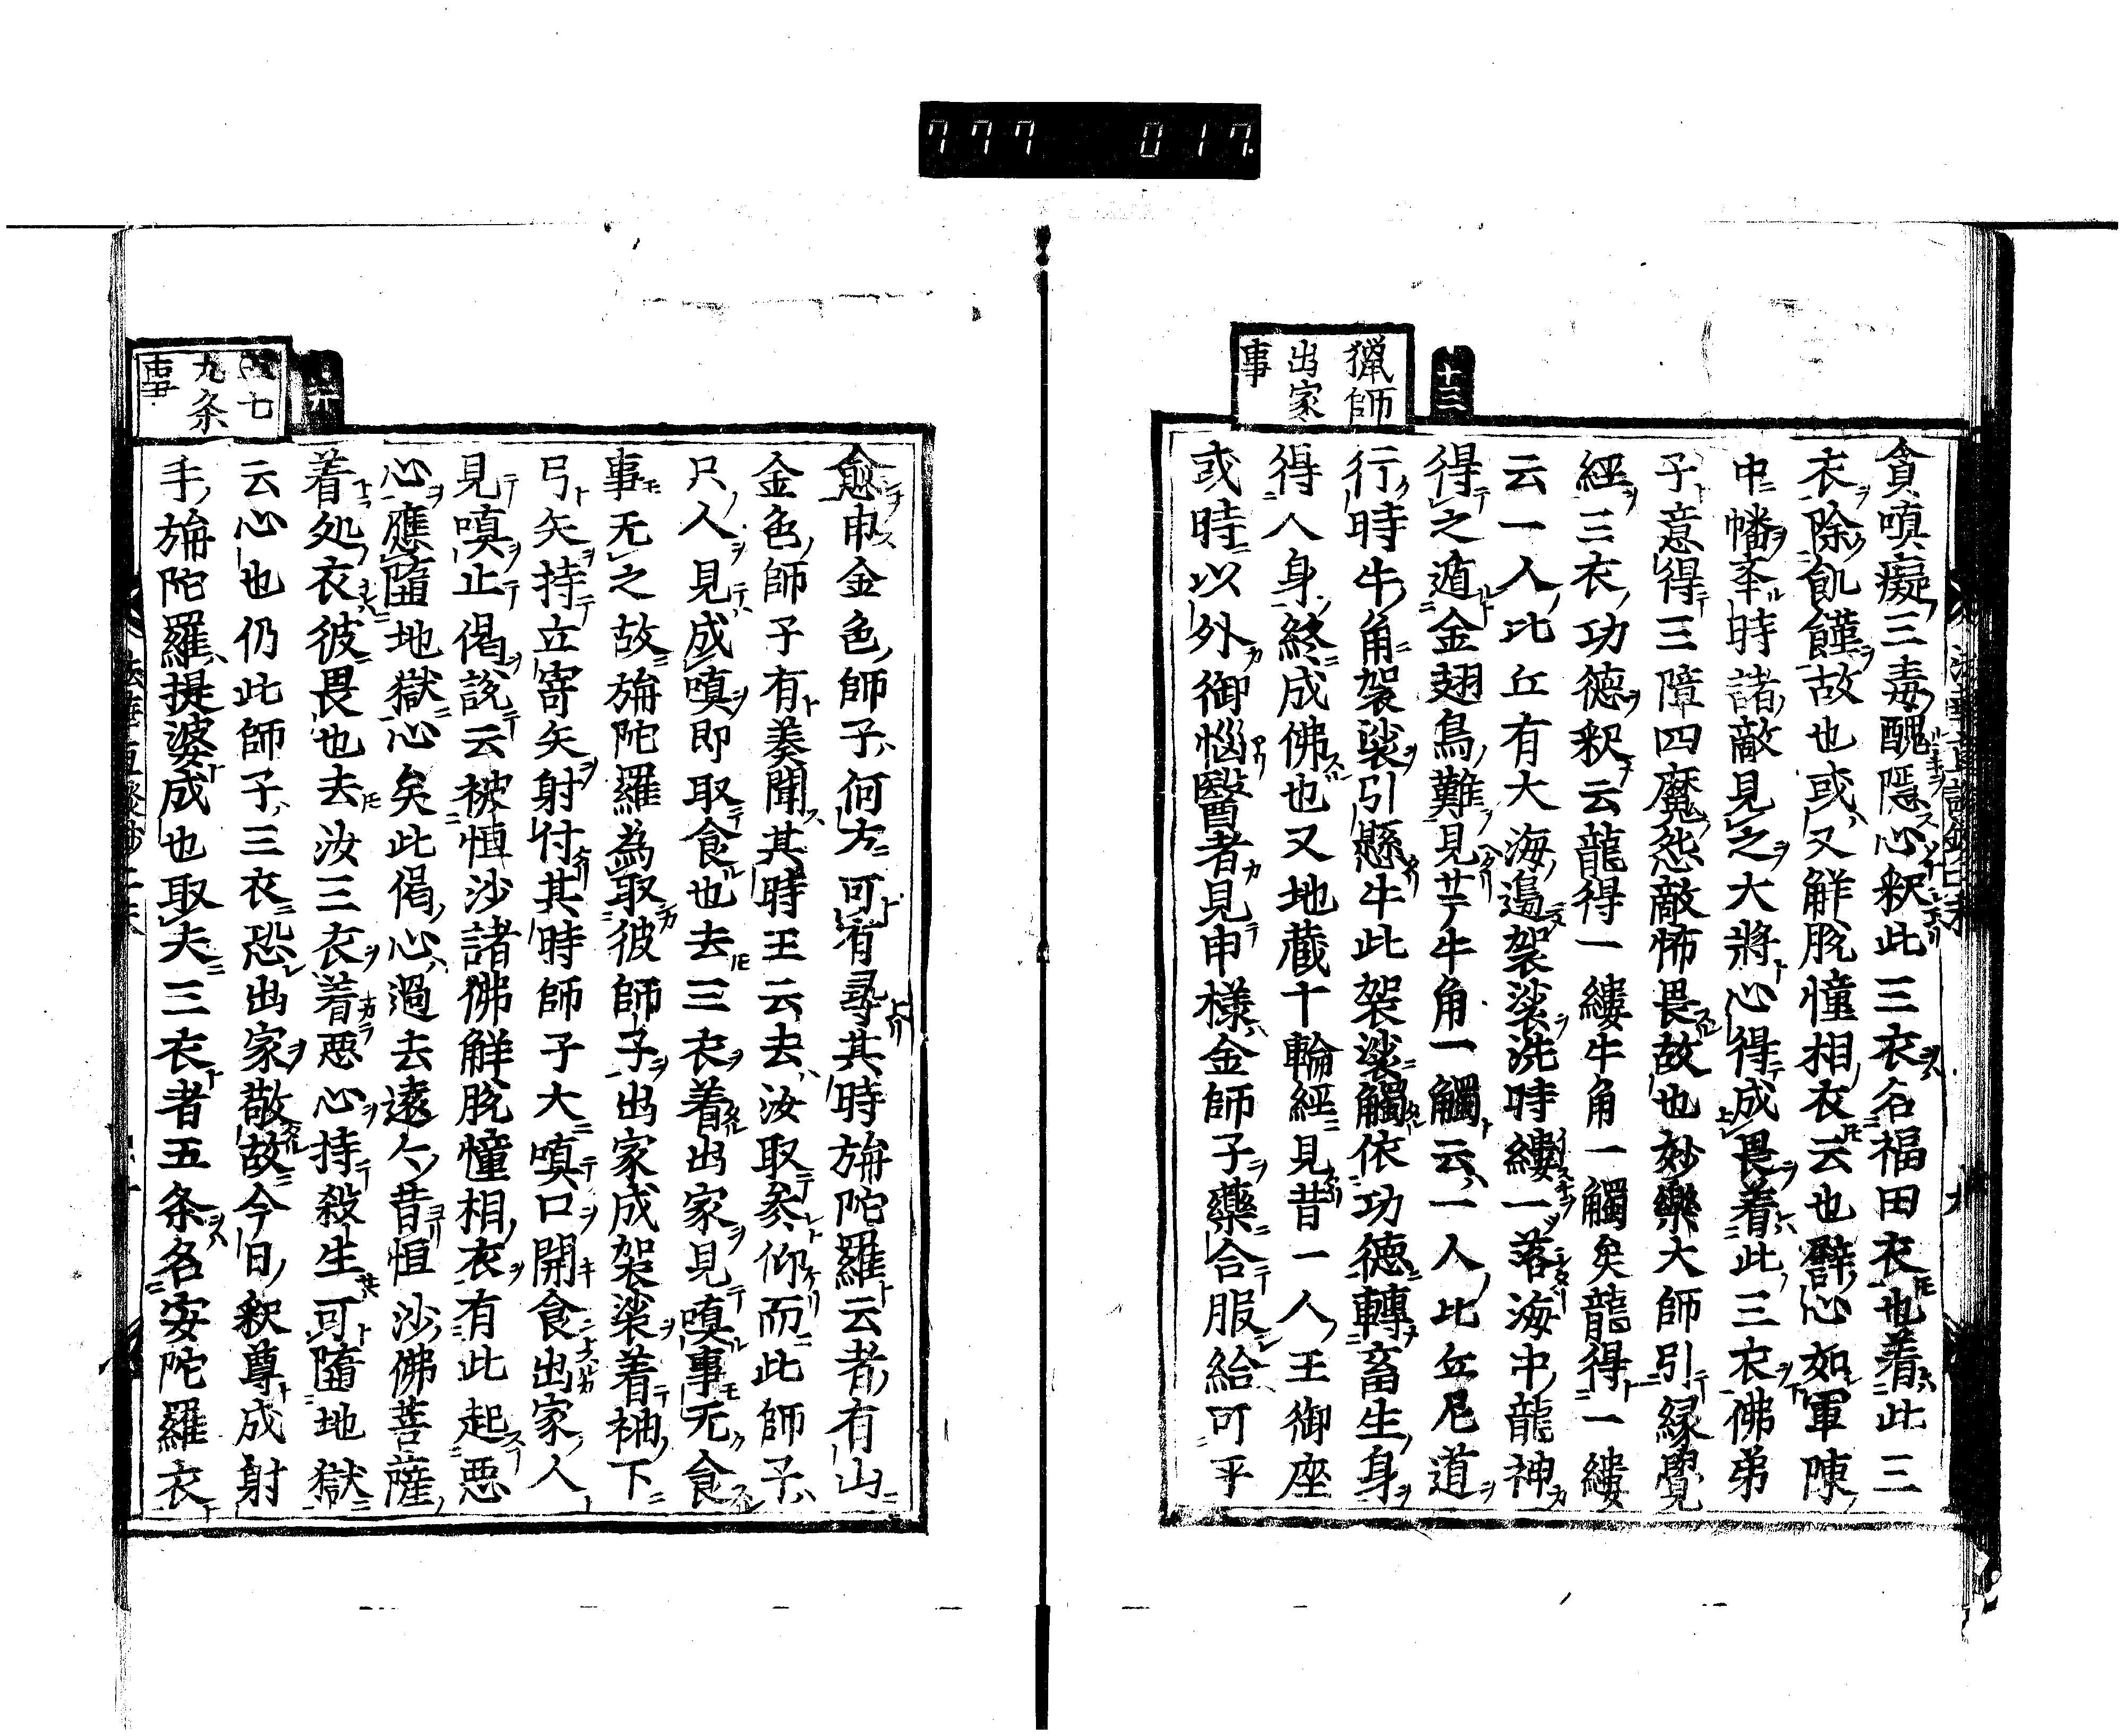 777 017
十三
猟師
出家
事
貪嗔癡三毒醜隠心釈此三衣名福田衣也着此三
衣除飢饉故也或又解脱憧相衣云也譬心如軍陳
中幡夆時諸敵見之大將心得成畏着此三衣佛弟
子意得三障四魔怨敵怖畏故也妙樂大師引縁覺
經三衣功徳釈云龍得一縷牛角一觸矣龍得一縷
云一人比丘有大海邉袈裟洗時縷一落海中龍神
得之遁金翅鳥難見牛角一觸云一人比丘尼道
行時牛角袈裟引懸牛此袈裟觸依功徳轉畜生身
得人身終成佛也又地蔵十輪經見昔一人王御座
或時以外御惱醫者見申様金師子藥合服給可平
六
七
九条
事
愈申金色師子何方可有尋其時旃陀羅云者有山
金色師子有奏聞其時王云去汝取参仰而此師子
尺人見成嗔即取食也去三衣着出家見嗔事无食
事无之故旃陀羅為取彼師子出家成袈裟着袖下
弓矢持立寄矢射付其時師子大嗔口開食出家人
見嗔止偈説云被恒沙諸佛解脱憧相衣有此起悪
心應墮地獄心矣此偈心過去遠々昔恒沙佛菩薩
着処衣彼畏也去汝三衣着悪心持殺生可墮地獄
云心也仍此師子三衣恐出家敬故今日釈尊成射
手旃陀羅提婆成也取夫三衣者五条名安陀羅衣